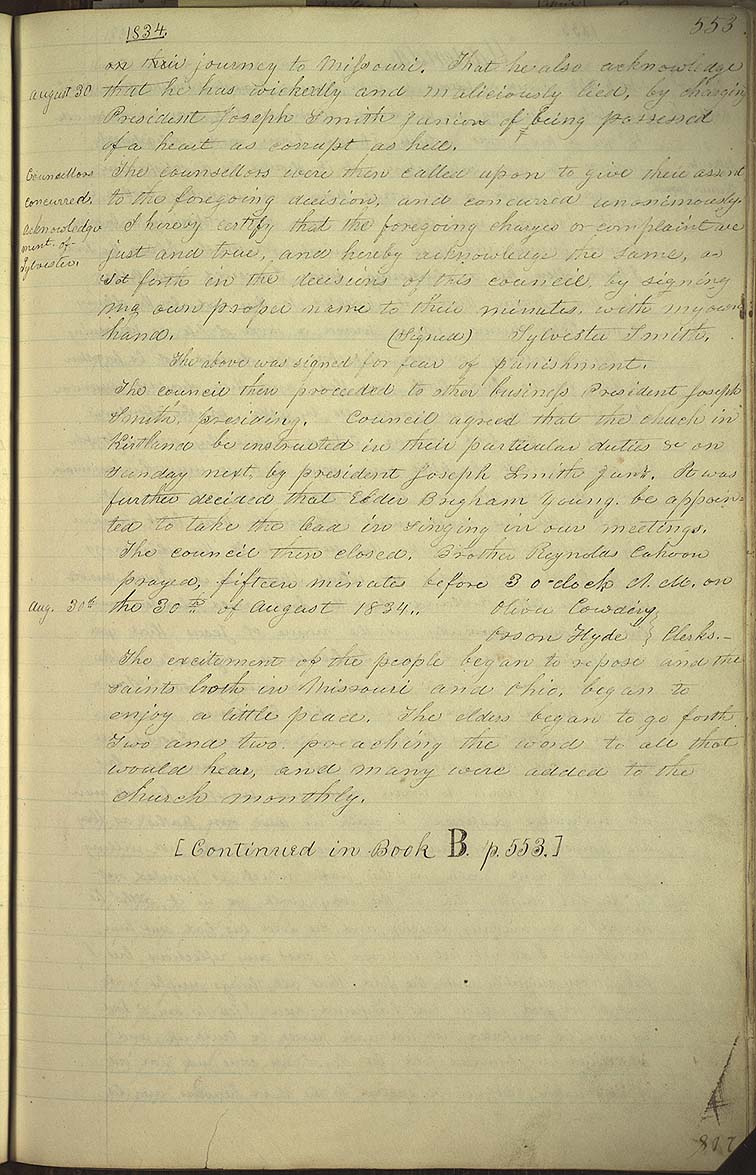 1834.
553
on their journey to Missouri. That he also acknowledge
august 30
that he has wickedly and maliciously lied, by charging
President Joseph Smith Junior of being possessed
of a heart as corrupt as hell.
Councillors
concurred.
The counsellors were then called upon to give their assent
to the foregoing decision, and concurred unonimously.
acknowledge
ment. of
Sylvester.
I hereby certify that the foregoing charges or complaint are
just and true, and hereby acknowledge the same, as
set forth in the decisions of this council, by signing
my own proper name to their minutes, with my own
hand. (Signed) Sylvester Smith.
The above was signed for fear of punishment.
The council then proceeded to other business President Joseph
Smith. presiding. Council agreed that the chuch in
Kirtland be instructed in their particular duties &c on
sunday next. by president Joseph Smith Junr. It was
further decided that Elder Brigham Young. be appoin-
ted to take the lead in singing in our meetings.
The council then closed. Brother Reynolds Cahoon
prayed, fifteen minutes before 3 o-clock A. M. on
Aug. 30th
the 30th of August 1834.. Oliver Cowdery
Orson Hyde } Clerks.—
The excitement of the people began to repose and the
saints both in Missouri and Ohio, began to
enjoy a little peace. The elders began to go forth
Two and two preaching the word to all that
would hear, and many were added to the
church monthly.
[Continued in Book B. p. 553.]